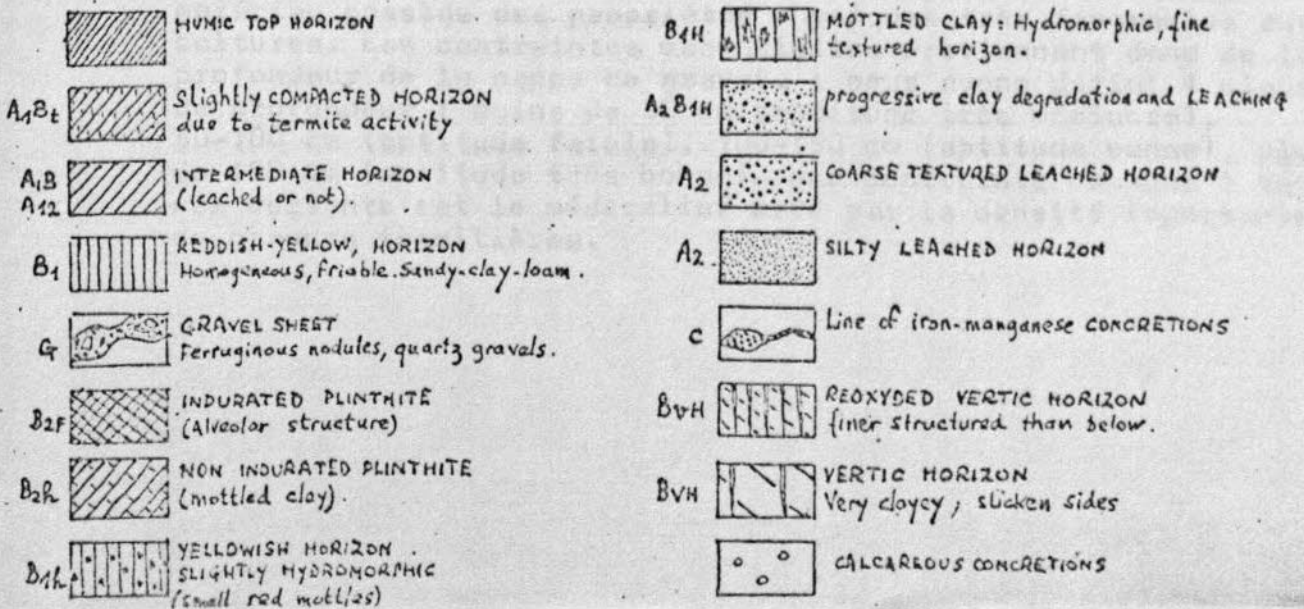 HUMIC TOP HORIZON
A1Bt
Slightly COMPACTED HORIZON
due to termite activity
A1B
A12
INTERMEDIATE HORIZON
(leached or not).
B1
REDDISH-YELLOW, HORIZON
Homogeneous, friable. Sandy-clay-loam.
G
GRAVEL SHEET
Ferruginous nodules, quartz gravels.
B2F
INDURATED PLINTHITE
(Alveolar structure)
B2h
NON INDURATED PLINTHITE
(mottled clay).
B1h
YELLOWISH HORIZON.
SLIGHTLY HYDROMORPHIC
(small red mottles)
B1H
MOTTLED CLAY: Hydromorphic, fine
textured horizon.
A2B1H
progressive clay degradation and LEACHING
A2
COARSE TEXTURED LEACHED HORIZON
A2
SILTY LEACHED HORIZON
C
Line of iron-manganese CONCRETIONS
BVH
REOXYDED VERTIC HORIZON
finer structured than below.
BVH
VERTIC HORIZON
Very clayey; slicken sides
CALCAREOUS CONCRETIONS